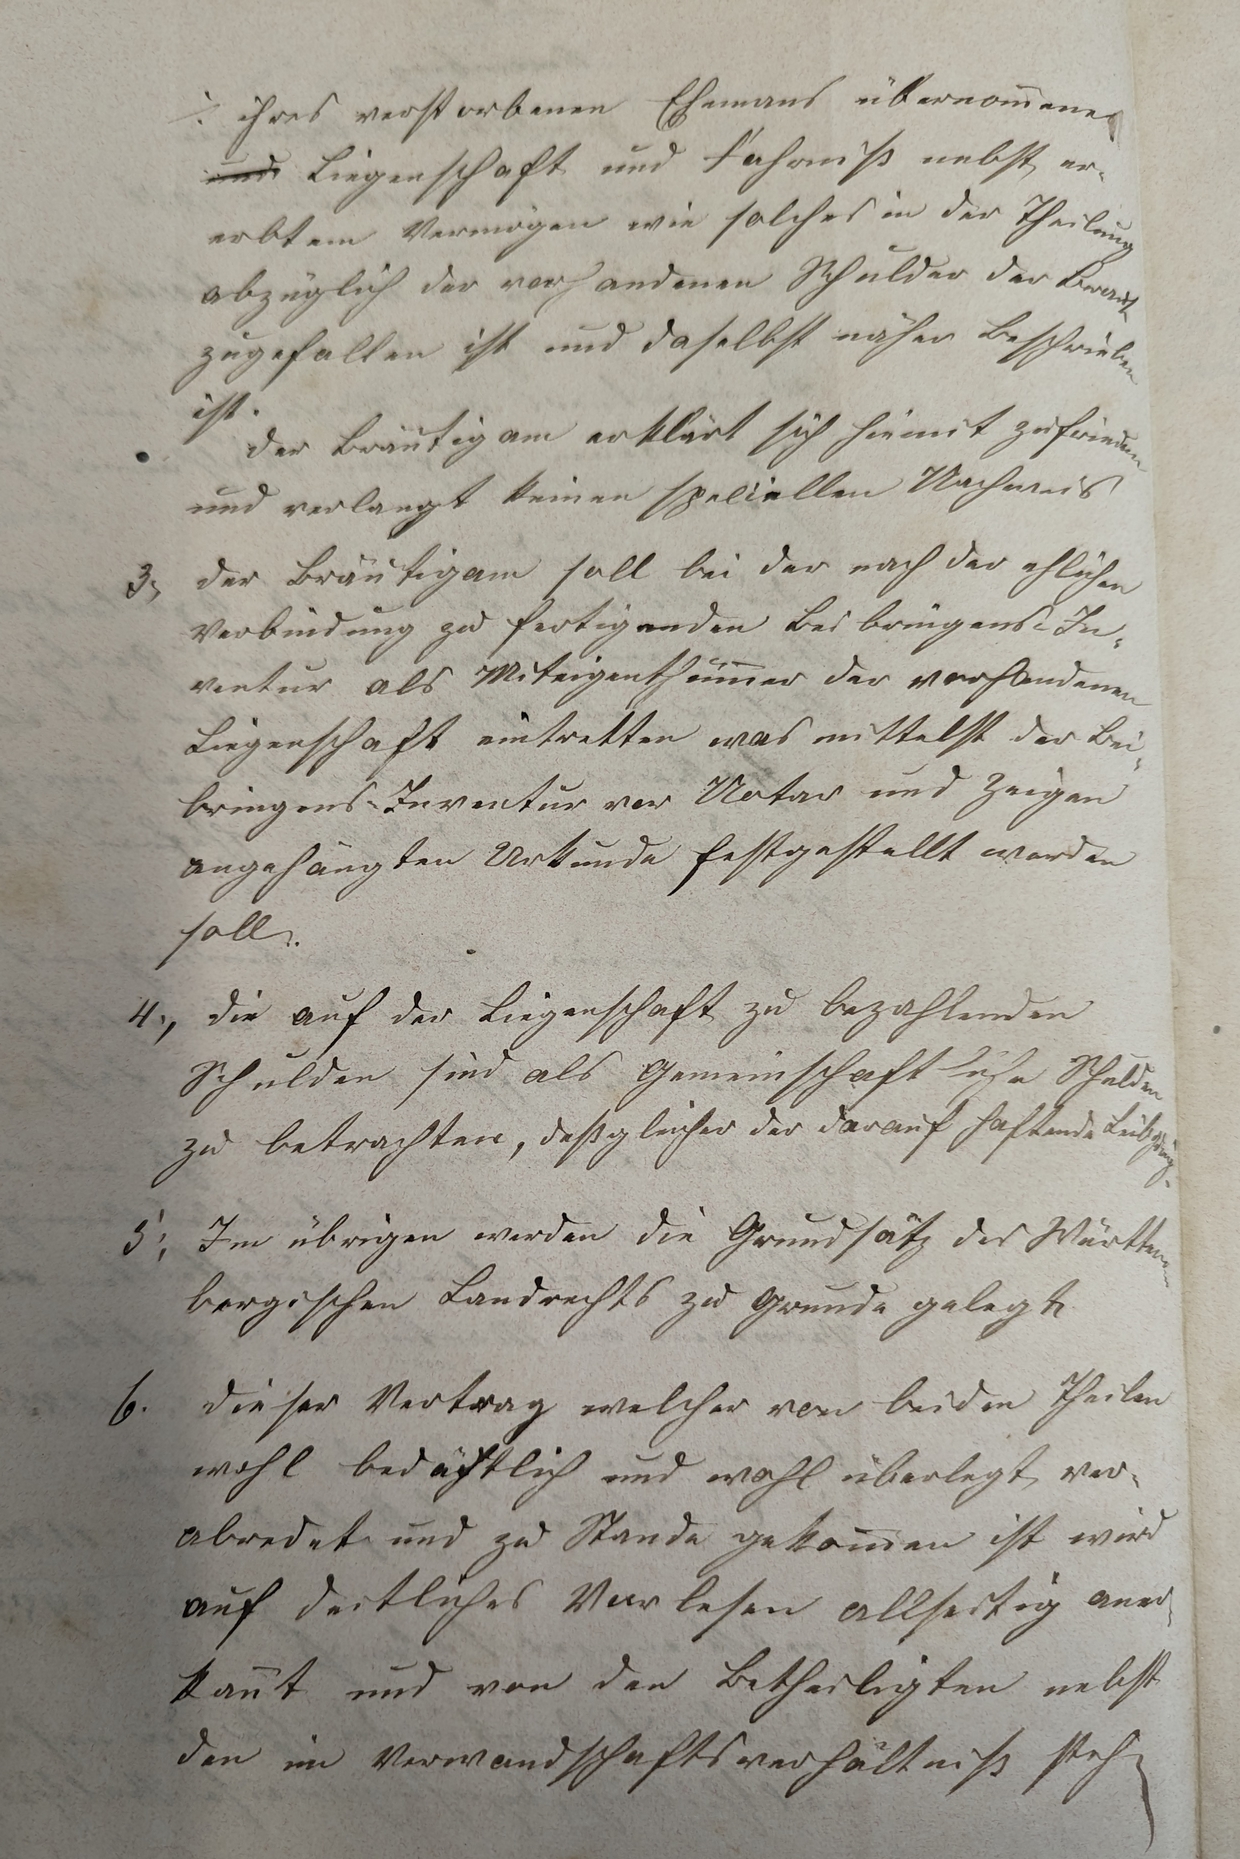 ·/. ihres verstorbenen Ehemans übernomenen
und Liegenschaft und Fahrniß nebst er-
erbtem Vermögen wie solches in der Theilung
abzüglich der vorhandenen Schulden der Braut
zugefallen ist und daselbst näher beschrieben
ist.
der Bräutigam erklärt sich hiemit zufrieden
und verlangt keinen speciellen Nachweis
3, der Bräutigam soll bei der nach der ehlichen
Verbindung zu fertigenden Beibringens-In-
ventur als Miteigenthümer der vorhandenen
Liegenschaft eintretten was mittelst der Bei-
bringens-Inventur vor Notar und Zeigen
angehängten Urkunde festgestellt werden
soll.
4., die auf der Liegenschaft zu bezahlenden
Schulden sind als Gemeinschaftliche Schulden
zu betrachten, deßgleichen der darauf haftende
5., Im übrigen werden die Grundsätz des Württem
bergischen Landrechts zu Grunde gelegt
6. dieser Vertrag welcher von beiden Theilen
wohl bedächtlich und wohl überlegt ver-
abredet und zu Stande gekomen ist wird
auf deitliches Vorlesen allseitig aner-
kant und von den Betheiligten nebst
den im Verwandschaftsverhältniß steh-